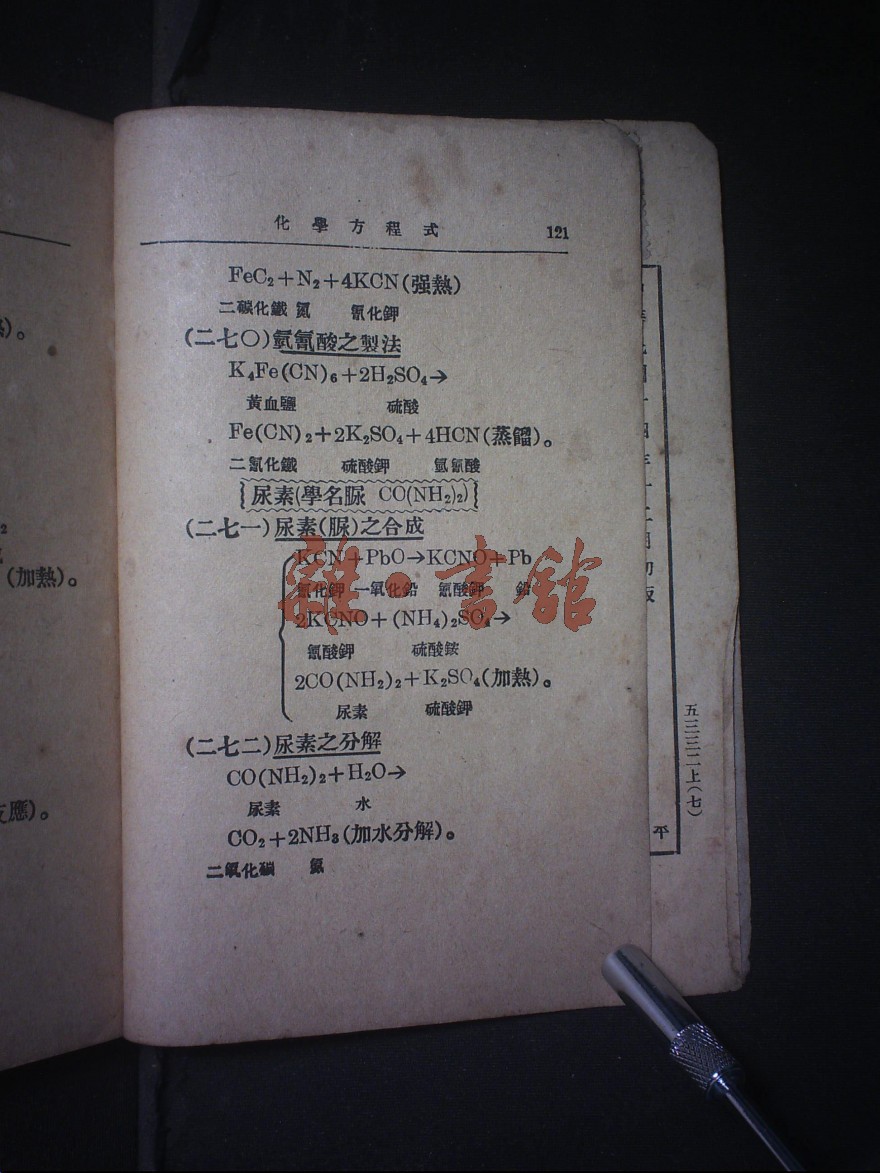 化學方程式 121
FeC₂+N₂+4KCN(强熱)
二碳化鐵 氮 氰化鉀
(二七〇)氫氰酸之製法
K₄Fe(CN)₆+2H₂SO₄→
黃血鹽 硫酸
Fe(CN)₂+2K₂SO₄+4HCN(蒸餾)。
二氰化鐵 硫酸鉀 氫氰酸
尿素(學名脲 CO(NH₂)₂)
(二七一)尿素(脲)之合成
KCN+PbO→KCNO+Pb
氰化鉀 一氧化鉛 氰酸鉀 鉛
2KCNO+(NH₄)₂SO₄→
氰酸鉀 硫酸銨
2CO(NH₂)₂+K₂SO₄(加熱)。
尿素 硫酸鉀
(二七二)尿素之分解
CO(NH₂)₂+H₂O→
尿素 水
CO₂+2NH₃(加水分解)。
二氧化碳 氨
雜·書館
)。
2
(加熱)。
應)。
五三三二上(七)
平